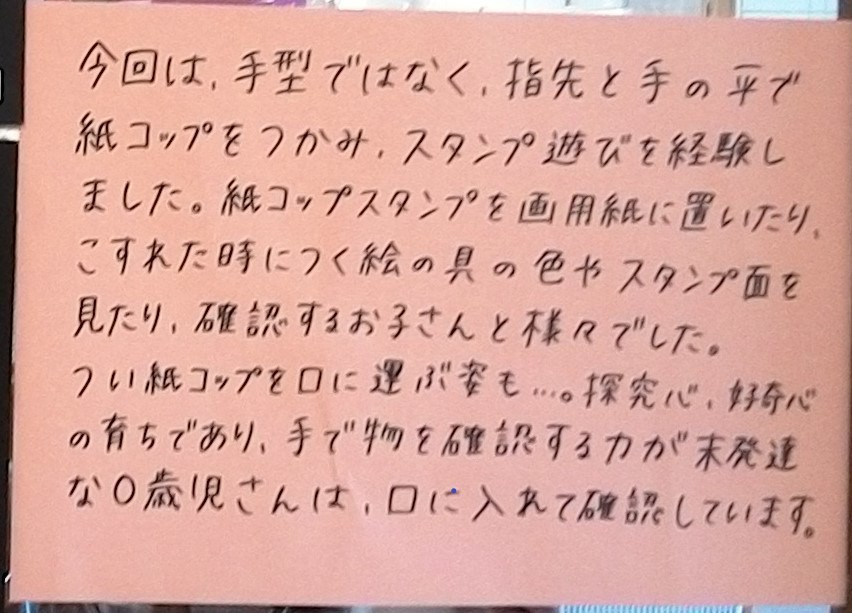 今回は、手型ではなく、指先と手の平で
紙コップをつかみ、スタンプ遊びを経験し
ました。紙コップスタンプを画用紙に置いたり、
こすれた時につく絵の具の色やスタンプ面を
見たり、確認するお子さんと様々でした。
つい紙コップを口に運ぶ姿も…。探究心、好奇心
の育ちであり、手で物を確認する力が末発達
な0歳児さんは、口に入れて確認しています。